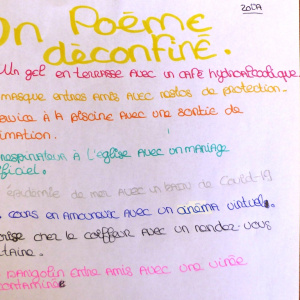 ZOLA
Un Poème
déconfiné.
Un gel en terrasse avec un café hydroalcoolique
masque entres amis avec restos de protection.
à la piscine avec une sortie de
imation.
respirateur à l'église avec un mariage
ficiel.
épidémie de mer avec un bain de Covid-19
cours en amoureux avec un cinéma virtuel.
chez le coiffeur avec un rendez vous
taire.
pangolin entre amis avec une virée
contaminée